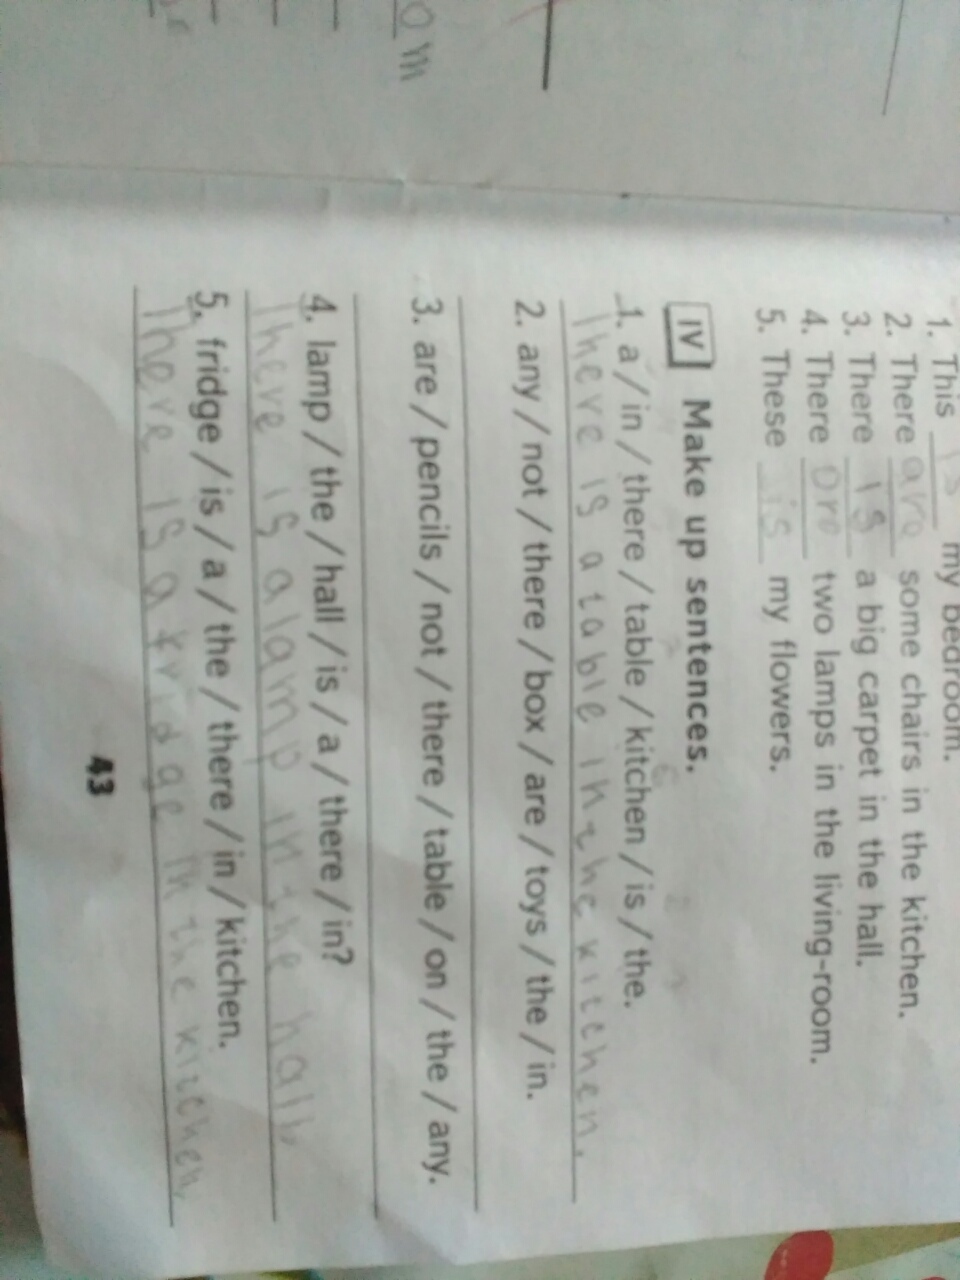 om
1. This is my bedroom.
2. There are some chairs in the kitchen.
3. There is a big carpet in the hall.
4. There are two lamps in the living-room.
5. These is my flowers.
IV Make up sentences.
1. a / in / there / table / kitchen / is / the.
There is a table in the kitchen.
2. any / not / there / box / are / toys / the / in.
3. are / pencils / not / there / table / on / the / any.
4. lamp / the / hall / is / a / there / in?
There is a lamp in the hall.
5. fridge / is / a / the / there / in / kitchen.
There is a fridage in the kitchen.
43